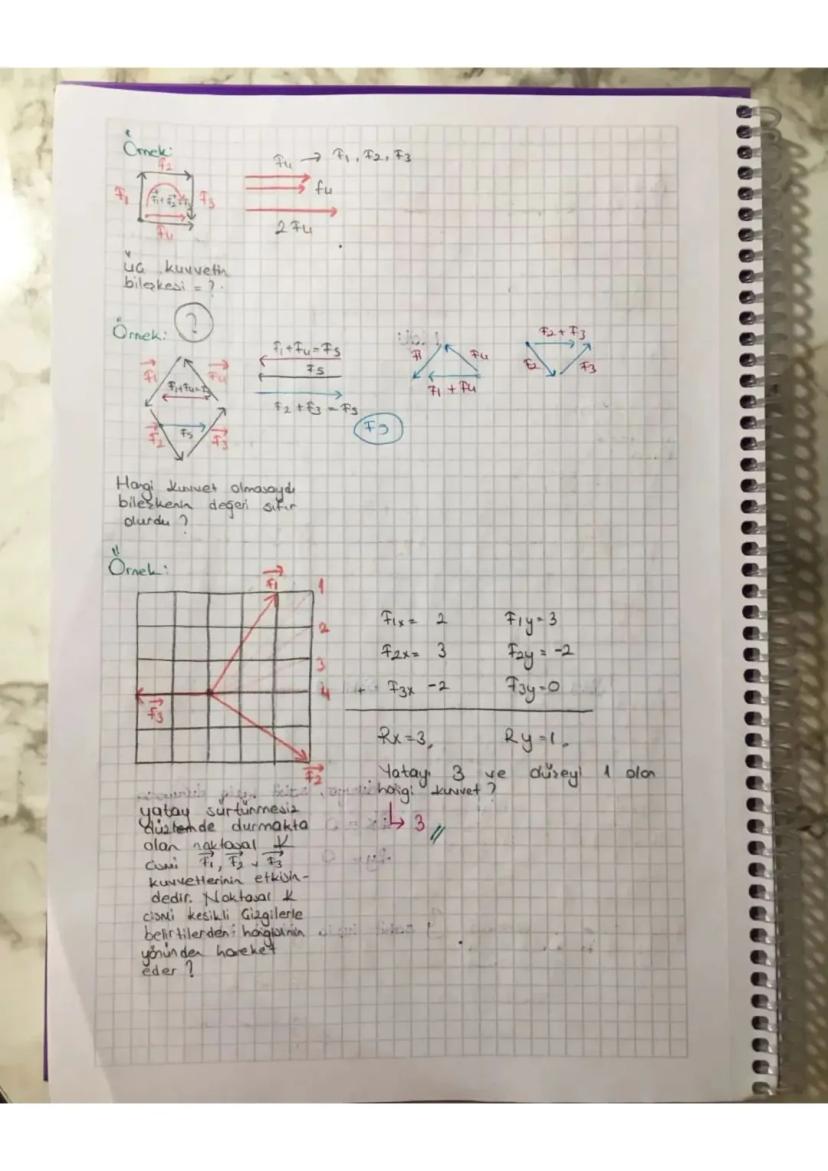 Örnek:
F2
F1
F1+F2+F3
F3
F4
F4 → F1, F2, F3
F4
2F4
üç kuvvetin
bileşkesi = ?
Örnek: ?
F1
F4
F1+F4=F5
F2
F5
F3
F1+F4=F5
F5
F2+F3=F5
F5
F1
F4
F1+F4
F2+F3
F2
F3
Hangi kuvvet olmasaydı
bileşkenin değeri sıfır
olurdu ?
Örnek:
F1
1
2
3
4
F3
F2
F1x = 2 F1y = 3
F2x = 3 F2y = -2
+ F3x -2 F3y = 0
Rx = 3 Ry = 1
Yatayı 3 ve düşeyi 1 olan
hangi kuvvet ?
↳ 3 //
yatay sürtünmesiz
düzlemde durmakta
olan noktasal K
cismi F1, F2, F3
kuvvetlerinin etkisin-
dedir. Noktasal K
cismi kesikli çizgilerle
belirtilerden hangisinin
yönünden hareket
eder ?